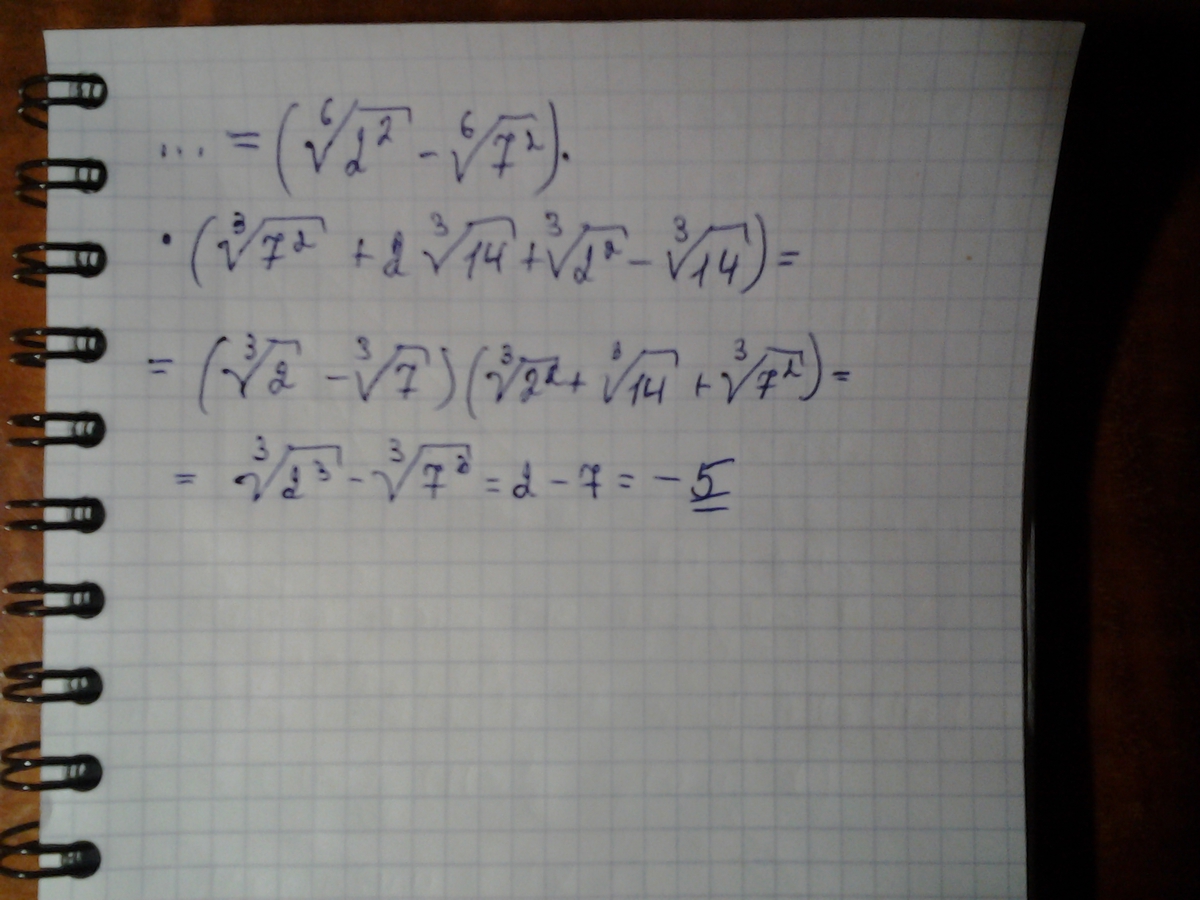 ... = (⁶√2² - ⁶√7²)·
· (³√7² + 2 ³√14 + ³√2² - ³√14) =
= (³√2 - ³√7)(³√2² + ³√14 + ³√7²) =
= ³√2³ - ³√7³ = 2 - 7 = -5